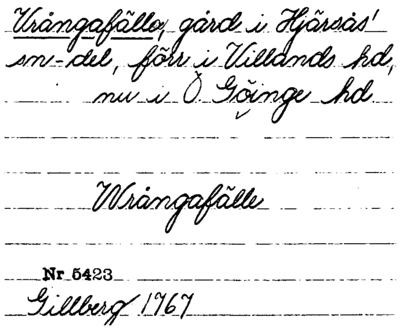 Vrångafälla, gård i Hjärsås'
sn-del, förr i Villands hd,
nu i Ö Göinge hd
Wrångafälle
Nr 5423
Gillberg 1767